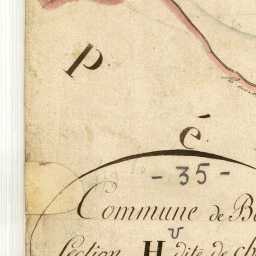 P
é
- 35 -
Commune de
Section H dite de